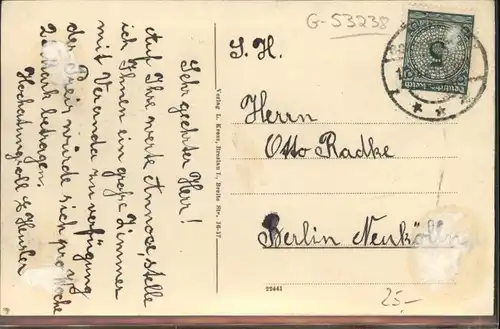 G-53238
S. H.
Herrn
Otto Radke
Berlin Neukölln
Sehr geehrter Herr!
Auf Ihre werte Annoce, stelle
ich Ihnen ein großes Zimmer
mit Veranda zu verfügung
der Preis würde sich pro Woche
Mark betragen.
Hochachtungsvoll
Verlag L. Kraus, Breslau I., Breite Str. 16-17
5
Deutsches Reich
25,-